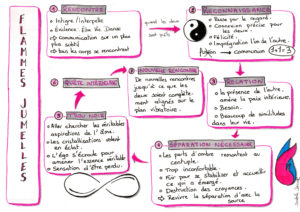 FLAMMES JUMELLES
① RENCONTRE
• Intrigue / Interpelle
• Evidence
→ communication sur un plan plus subtil
→ tous les corps se rencontrent
quand les deux
② RECONNAISSANCE
• Passe par le regard
• Connexion précise pour les deux
• Félicité
• Imprégnation l'un de l'autre.
Fusion → communion
1+1=3
③ RELATION
• la présence de l'autre amène la paix intérieure.
• Besoin
• Beaucoup de similitudes dans leur vie.
④ SÉPARATION NÉCESSAIRE
• Les parts d'ombre remontent au centuple.
• Trop inconfortable.
• Fuir pour se stabiliser et accueillir ce qui a émergé.
• Destruction des croyances.
→ Revivre la séparation d'avec la source
⑤ TROU NOIR
• Aller chercher les véritables aspirations de l'âme.
• Les cristallisations volent en éclat.
• L'égo s'écroule pour amener l'essence véritable
• Sensation d'être perdu.
⑥ QUÊTE INTÉRIEURE
⑦ NOUVELLE RENCONTRE
De nouvelles rencontres jusqu'à ce que les deux soient complètement alignés sur le plan vibratoire.